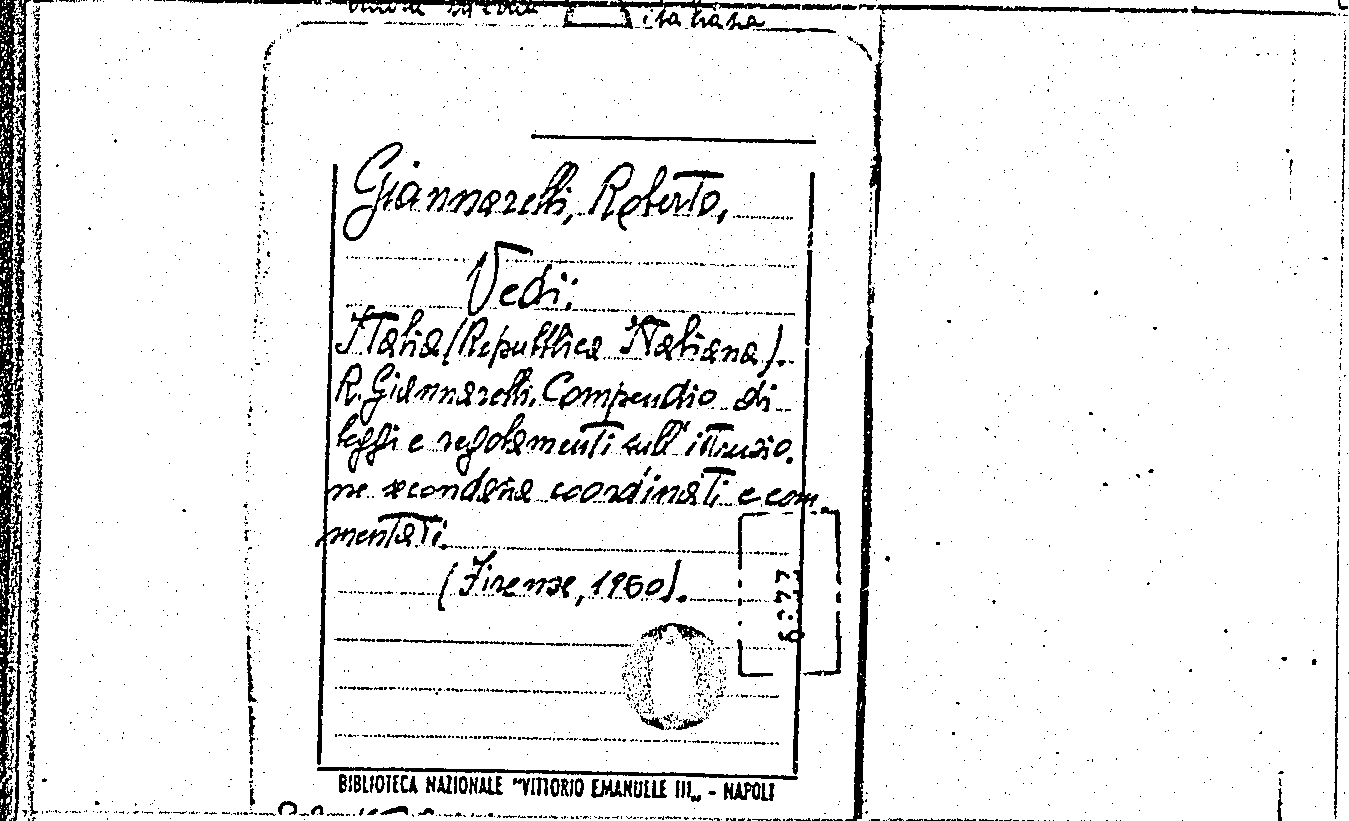 italiana
Giannarelli, Roberto,
Vedi:
Italia (Repubblica Italiana).
R. Giannarelli. Compendio di
leggi e regolamenti sull'istruzio.
ne secondaria coordinati e com.
mentati.
(Firenze, 1950).
BIBLIOTECA NAZIONALE "VITTORIO EMANUELE III„ - NAPOLI